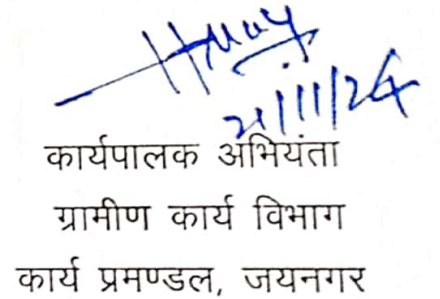 21/11/24
कार्यपालक अभियंता
ग्रामीण कार्य विभाग
कार्य प्रमण्डल, जयनगर